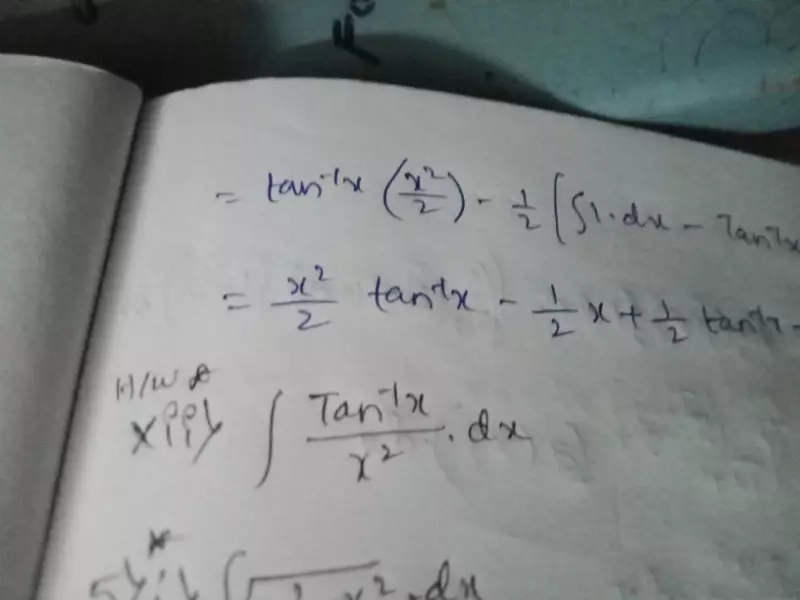 = tan⁻¹x (x²/2) - 1/2 [∫1.dx - Tan⁻¹x
= x²/2 tan⁻¹x - 1/2 x + 1/2 tan⁻¹x -
H/W
xiii) ∫ Tan⁻¹x/x² . dx